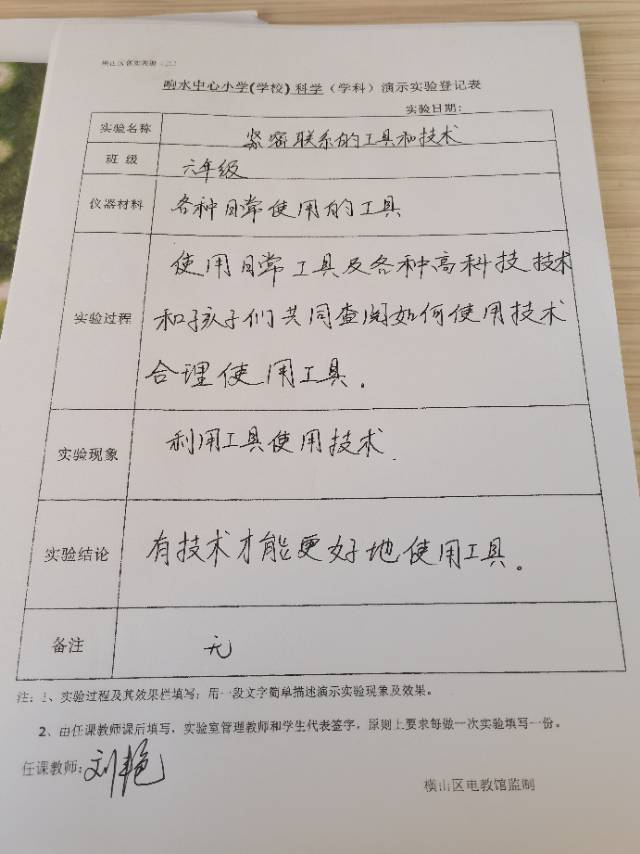 响水中心小学(学校)科学(学科)演示实验登记表
实验日期:
实验名称 紧密联系的工具和技术
班 级 六年级
仪器材料 各种日常使用的工具
使用日常工具及各种高科技技术
实验过程 和孩子们共同查阅如何使用技术
合理使用工具.
实验现象 利用工具使用技术.
实验结论 有技术才能更好地使用工具。
备注 无
注:1、实验过程及其效果栏填写:用一段文字简单描述演示实验现象及效果。
2、由任课教师课后填写,实验室管理教师和学生代表签字,原则上要求每做一次实验填写一份。
任课教师:刘艳
横山区电教馆监制